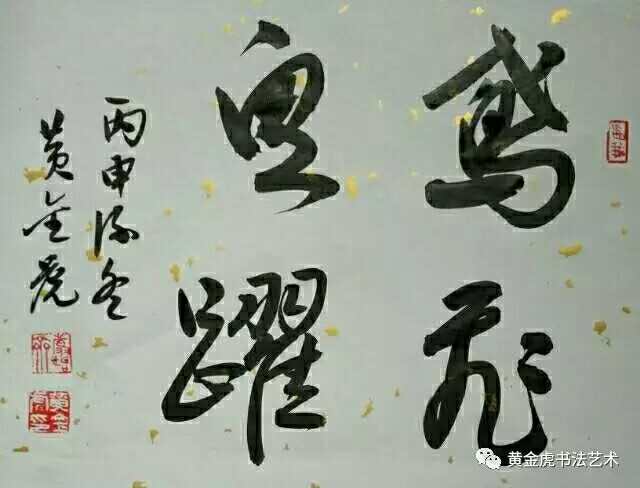 鸢飞
鱼跃
丙申深冬
黄金虎
黄金虎书法艺术